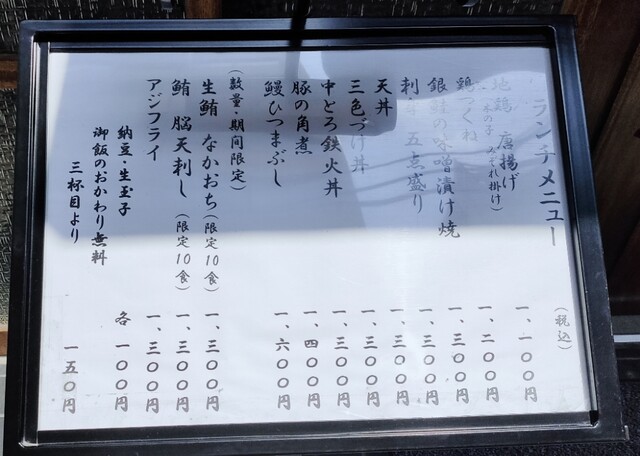 ランチメニュー (税込)
地鶏 唐揚げ 一、一〇〇円
木の子 みぞれ掛け)
鶏つくね 一、二〇〇円
銀鮭の味噌漬け焼 一、三〇〇円
刺身 五点盛り 一、三〇〇円
天丼 一、三〇〇円
三色づけ丼 一、三〇〇円
中とろ鉄火丼 一、三〇〇円
豚の角煮 一、四〇〇円
鰻ひつまぶし 一、六〇〇円
(数量・期間限定)
生鮪 なかおち(限定10食) 一、三〇〇円
鮪 脳天刺し(限定10食) 一、三〇〇円
アジフライ 一、三〇〇円
納豆・生玉子 各 一〇〇円
御飯のおかわり無料
三杯目より 一五〇円